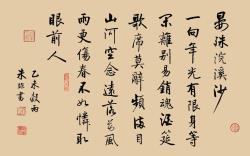 晏殊浣溪沙
一向年光有限身等
閒離別易銷魂酒筵
歌席莫辭頻滿目
山河空念遠落花風
雨更傷春不如憐取
眼前人
乙未穀雨
朱書